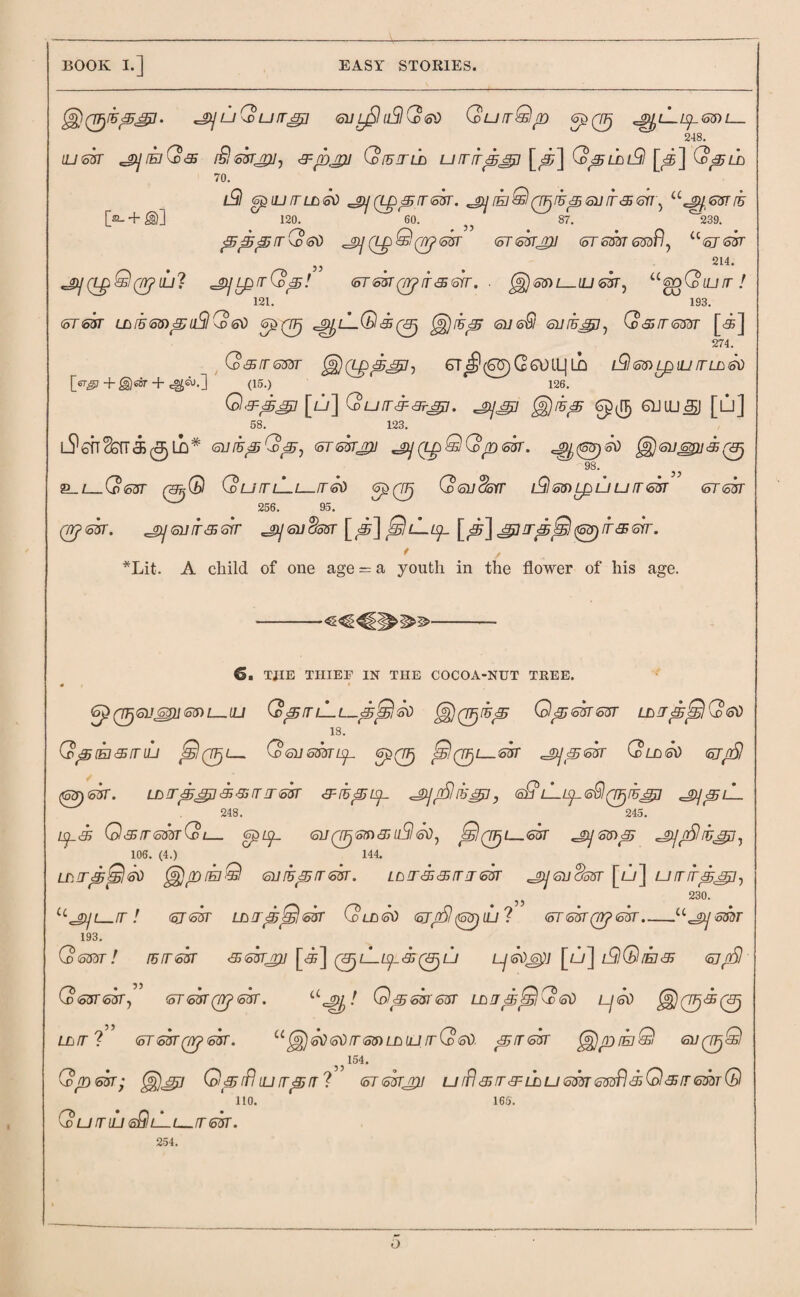 BOOK I.] EASY STORIES.
இருந்தது. அப்போது வழியிலே போகிற ஒரு ஆட்டிடை
248.
யன் அங்கே நின்று, சற்று நேரம் பார்த்து [த்] தேம்பி [த்] தேம்
70.
பி ஒயாமல் அழுதான். அங்கிருந்தவர்கள், “ஆனந்
[உ + இ] 120. 60. 87. 239.
தத்தாலே அழுகிறான்” என்று எண்ணி, “ஏன்
214.
அழுகிறாய்? அழாதே!” என்றார்கள். இடையன், “ஐயோ!
121. 193.
என் மந்தையிலே ஒரு ஆட்டுக்கு இந்த வலி வந்து, கோண [க்]
274.
கோண இழுத்து, எத்னாலேயும் பிழையாமல்
[எது + இன் + ஆல்.] (15.) 126.
செத்து [ப்] போச்சுது. அது இந்த ஒரு வயது [ப்]
58. 123.
பிள்ளைக்கும்* வந்ததே, என்று அழுகிறேன். ஆனால் இவனுக்கு
98.
உடனே சூடு போட்டால் ஒரு வேளை பிழைப்பான்” என்
256. 95.
றான். அவர்கள் அவனை [த்] திட்டி [த்] துரத்தினார்கள்.
*Lit. A child of one age = a youth in the flower of his age.
6. THE THIEF IN THE COCOA-NUT TREE.
ஒருவனுடைய தோட்டத்தில் இருந்த தென்ன மரத்திலே
18.
தேங்காய் திருட வேண்டி ஒரு திருடன் அதன் மேல் ஏறி
னான். மரத்துக்காரன் சந்தடி அறிந்து, வீட்டிலிருந்து அதட்
248. 245.
டிக் கொண்டே ஓடி வருகையில், திருடன் அதை அறிந்து,
106. (4.) 144.
மரத்தில் இறங்கி வந்தான். மரக்காரன் அவனை [ப்] பார்த்து,
230.
“அடா! ஏன் மரத்தின் மேல் ஏறினாய்?” என்றான.—“அண்
193.
ணே! நான் கன்று [க்] குட்டிக்குப் புல்லு [ப்] பிடுங்க ஏறி
னேன்,” என்றான். “ஆ! தென்ன மரத்திலே புல் இருக்கு
மா?” என்றான். “இல்லாமையாலே தான் இறங்கி வருகி
154.
றேன்; இது தெரியாதா?” என்று பரிகாசம்பண்ணிக்கொண்டு
110. 165.
போய் விட்டான்.
254.
5